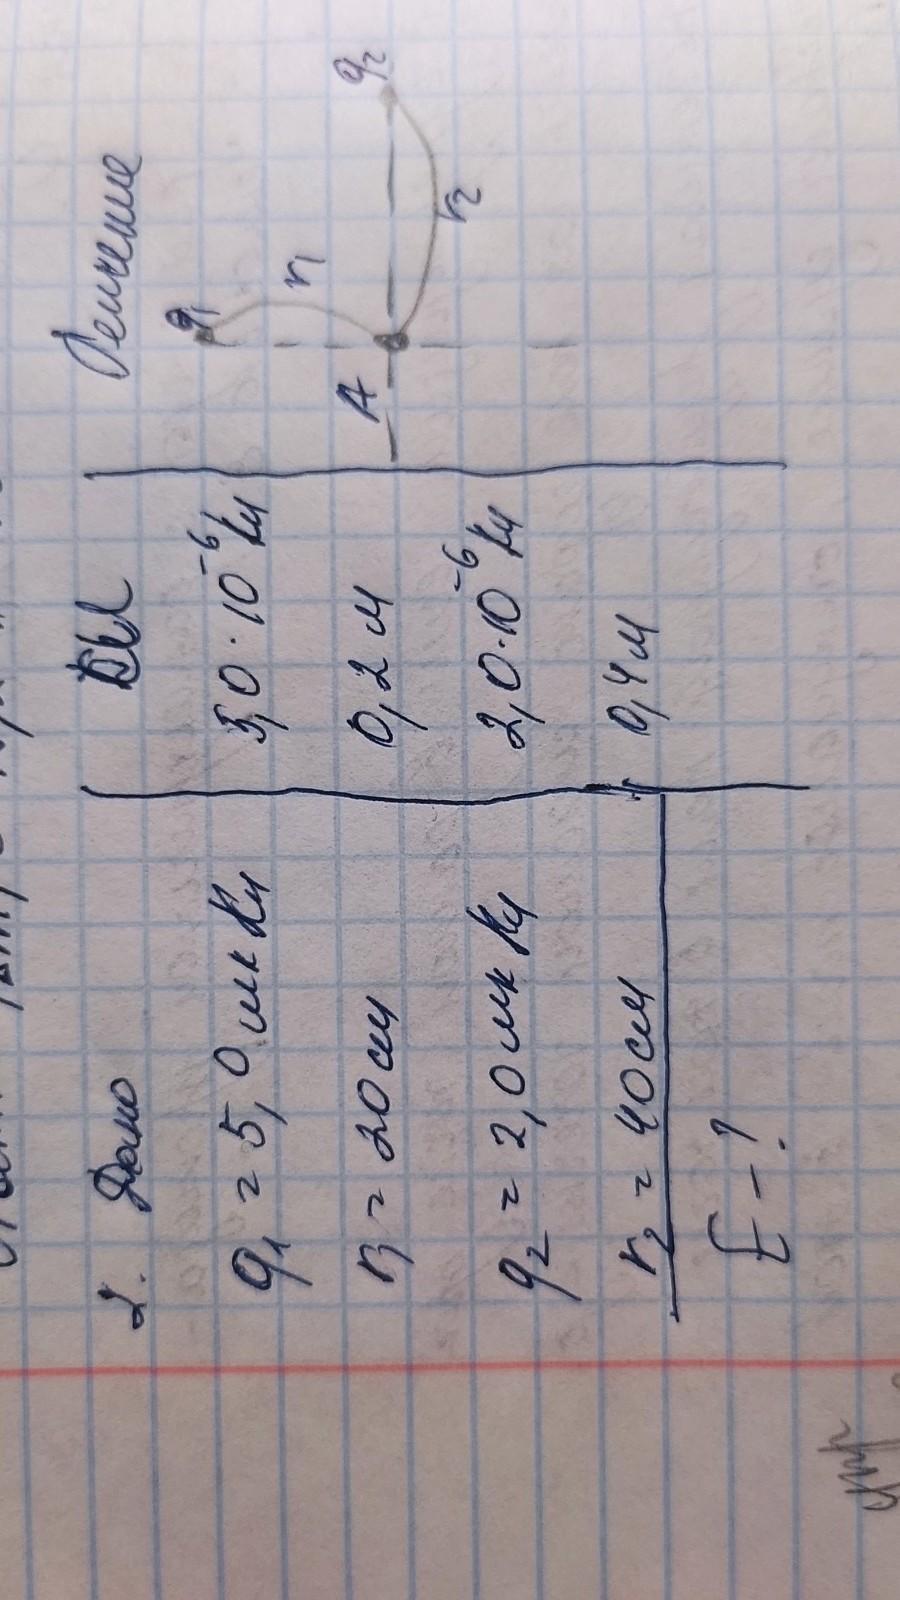 2. Дано
q1 = 5,0 мкКл
r1 = 20 см
q2 = 2,0 мкКл
r2 = 40 см
E - ?
СИ
5,0·10⁻⁶ Кл
0,2 м
2,0·10⁻⁶ Кл
0,4 м
Решение
q1
r1
A
r2
q2